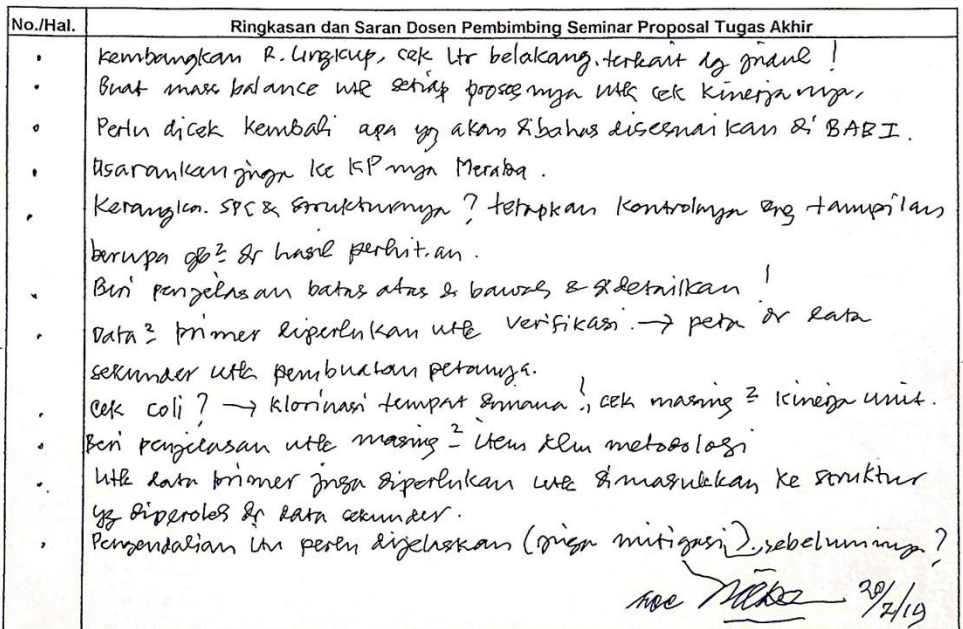 No./Hal. Ringkasan dan Saran Dosen Pembimbing Seminar Proposal Tugas Akhir
• Kembangkan R. Lingkup, cek ltr belakang. terkait dg judul !
• Buat mass balance utk setiap prosesnya utk cek kinerjanya,
• Perlu dicek kembali apa yg akan dibahas disesuaikan di BAB I.
• Disarankan juga ke KP nya Meraba.
• Kerangka. SPC & strukturnya ? tetapkan kontrolnya dng tampilan
berupa gb² dr hasil perhit.an.
• Beri penjelasan batas atas & bawah & didetailkan !
• Data² primer diperlukan utk verifikasi. → peta dr data
sekunder utk pembuatan petanya.
• cek coli ? → klorinasi tempat dimana !, cek masing² kinerja unit.
• Beri penjelasan utk masing² item dlm metodologi
• Utk data primer juga diperlukan utk dimasukkan ke struktur
yg diperoleh dr data sekunder.
• Pengendalian itu perlu dijelaskan (juga mitigasi), sebelumnya ?